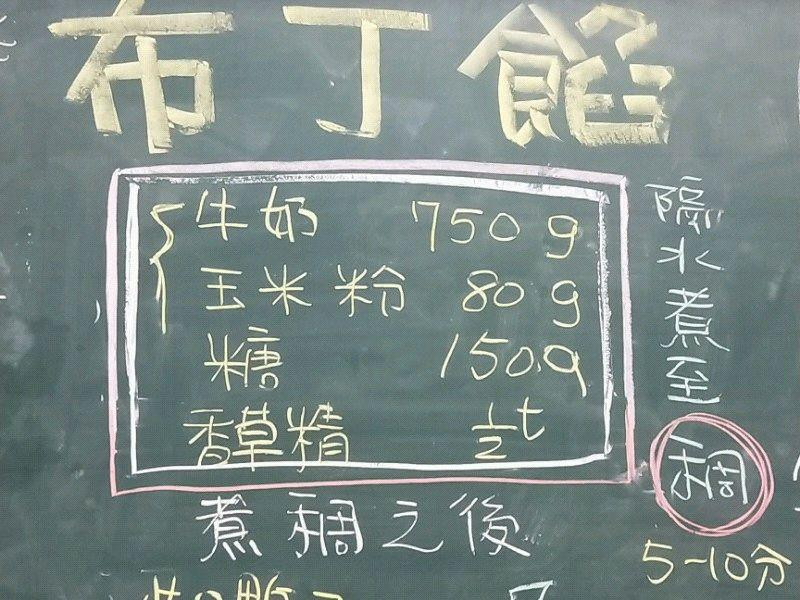 布丁餡
牛奶 750g
玉米粉 80g
糖 150g
香草精 ½t
隔水煮至稠
5-10分
煮稠之後